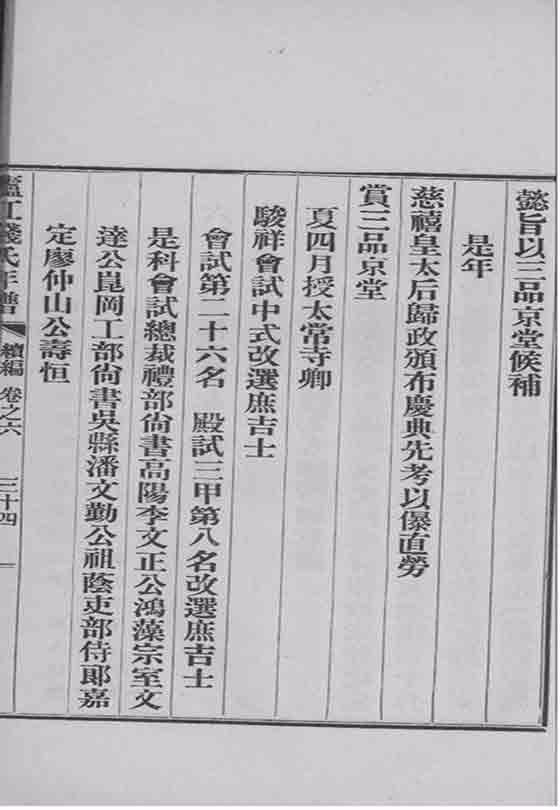 懿旨以三品京堂候補
是年
慈禧皇太后歸政頒布慶典先考以儤直勞
賞三品京堂
夏四月授太常寺卿
駿祥會試中式改選庶吉士
會試第二十六名　殿試三甲第八名改選庶吉士
是科會試總裁禮部尚書高陽李文正公鴻藻宗室文
達公崑岡工部尚書吳縣潘文勤公祖蔭吏部侍郎嘉
定廖仲山公壽恒
江錢氏年譜　續編　卷之六　三十四